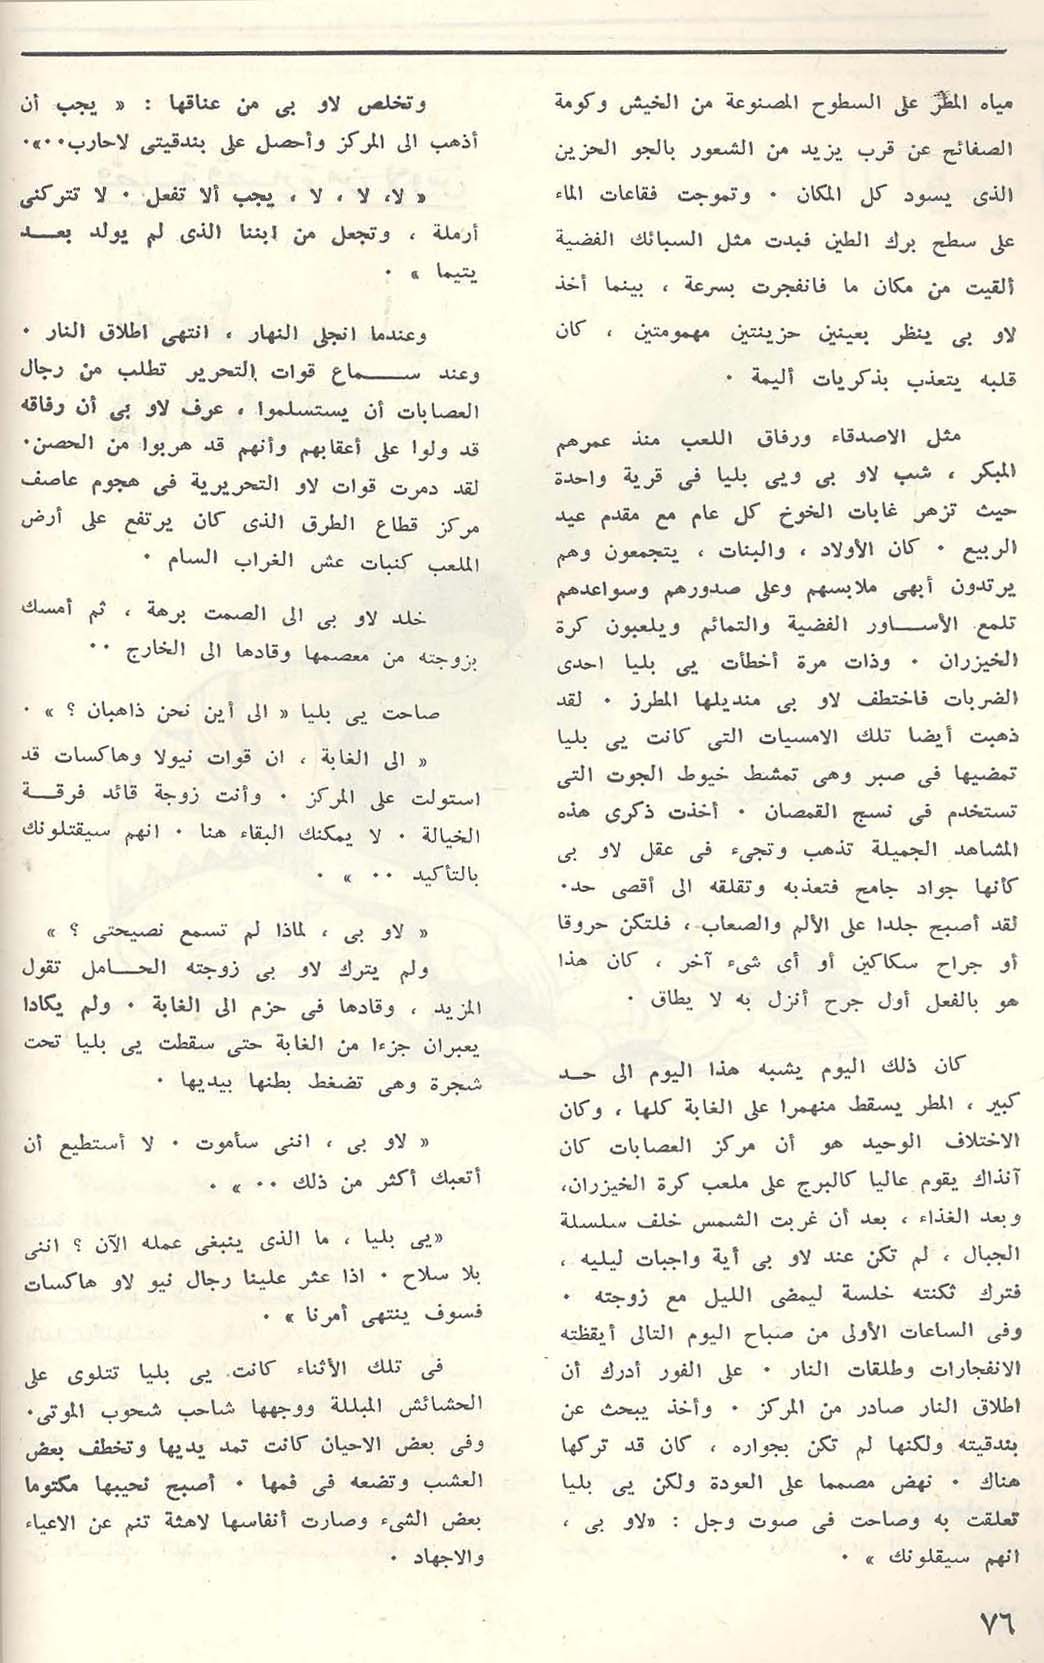 مياه المطر على السطوح المصنوعة من الخيش وكومة
الصفائح عن قرب يزيد من الشعور بالجو الحزين
الذى يسود كل المكان ٠ وتموجت فقاعات الماء
على سطح برك الطين فبدت مثل السبائك الفضية
ألقيت من مكان ما فانفجرت بسرعة ، بينما أخذ
لاو بى ينظر بعينين حزينتين مهمومتين ، كان
قلبه يتعذب بذكريات أليمة ٠
مثل الاصدقاء ورفاق اللعب منذ عمرهم
المبكر ، شب لاو بى ويى بليا فى قرية واحدة
حيث تزهر غابات الخوخ كل عام مع مقدم عيد
الربيع ٠ كان الأولاد ، والبنات ، يتجمعون وهم
يرتدون أبهى ملابسهم وعلى صدورهم وسواعدهم
تلمع الأســاور الفضية والتمائم ويلعبون كرة
الخيزران ٠ وذات مرة أخطأت يى بليا احدى
الضربات فاختطف لاو بى منديلها المطرز ٠ لقد
ذهبت أيضا تلك الامسيات التى كانت يى بليا
تمضيها فى صبر وهى تمشط خيوط الجوت التى
تستخدم فى نسج القمصان ٠ أخذت ذكرى هذه
المشاهد الجميلة تذهب وتجىء فى عقل لاو بى
كأنها جواد جامح فتعذبه وتقلقه الى أقصى حد٠
لقد أصبح جلدا على الألم والصعاب ، فلتكن حروقا
أو جراح سكاكين أو أى شىء آخر ، كان هذا
هو بالفعل أول جرح أنزل به لا يطاق ٠
كان ذلك اليوم يشبه هذا اليوم الى حــد
كبير ، المطر يسقط منهمرا على الغابة كلها ، وكان
الاختلاف الوحيد هو أن مركز العصابات كان
آنذاك يقوم عاليا كالبرج على ملعب كرة الخيزران،
وبعد الغذاء ، بعد أن غربت الشمس خلف سلسلة
الجبال ، لم تكن عند لاو بى أية واجبات ليليه ،
فترك ثكنته خلسة ليمضى الليل مع زوجته ٠
وفى الساعات الأولى من صباح اليوم التالى أيقظته
الانفجارات وطلقات النار ٠ على الفور أدرك أن
اطلاق النار صادر من المركز ٠ وأخذ يبحث عن
بندقيته ولكنها لم تكن بجواره ، كان قد تركها
هناك ٠ نهض مصمما على العودة ولكن يى بليا
تعلقت به وصاحت فى صوت وجل : «لاو بى ،
انهم سيقلونك » ٠
وتخلص لاو بى من عناقها : « يجب أن
أذهب الى المركز وأحصل على بندقيتى لاحارب٠٠»٠
« لا، لا ، لا ، يجب ألا تفعل ٠ لا تتركنى
أرملة ، وتجعل من ابننا الذى لم يولد بعــد
يتيما » ٠
وعندما انجلى النهار ، انتهى اطلاق النار ٠
وعند ســـماع قوات التحرير تطلب من رجال
العصابات أن يستسلموا ، عرف لاو بى أن رفاقه
قد ولوا على أعقابهم وأنهم قد هربوا من الحصن٠
لقد دمرت قوات لاو التحريرية فى هجوم عاصف
مركز قطاع الطرق الذى كان يرتفع على أرض
الملعب كنبات عش الغراب السام ٠
خلد لاو بى الى الصمت برهة ، ثم أمسك
بزوجته من معصمها وقادها الى الخارج ٠٠
صاحت يى بليا « الى أين نحن ذاهبان ؟ » ٠
« الى الغابة ، ان قوات نيولا وهاكسات قد
استولت على المركز ٠ وأنت زوجة قائد فرقــة
الخيالة ٠ لا يمكنك البقاء هنا ٠ انهم سيقتلونك
بالتأكيد ٠٠ » ٠
« لاو بى ، لماذا لم تسمع نصيحتى ؟ »
ولم يترك لاو بى زوجته الحــامل تقول
المزيد ، وقادها فى حزم الى الغابة ٠ ولم يكادا
يعبران جزءا من الغابة حتى سقطت يى بليا تحت
شجرة وهى تضغط بطنها بيديها ٠
« لاو بى ، اننى سأموت ٠ لا أستطيع أن
أتعبك أكثر من ذلك ٠٠ » ٠
«يى بليا ، ما الذى ينبغى عمله الآن ؟ اننى
بلا سلاح ٠ اذا عثر علينا رجال نيو لاو هاكسات
فسوف ينتهى أمرنا » ٠
فى تلك الأثناء كانت يى بليا تتلوى على
الحشائش المبللة ووجهها شاحب شحوب الموتى٠
وفى بعض الاحيان كانت تمد يديها وتخطف بعض
العشب وتضعه فى فمها ٠ أصبح نحيبها مكتوما
بعض الشىء وصارت أنفاسها لاهثة تنم عن الاعياء
والاجهاد ٠
٧٦